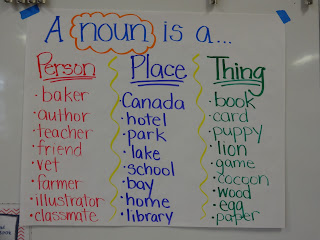 A noun is a...
Person Place Thing
• baker
• author
• teacher
• friend
• vet
• farmer
• illustrator
• classmate
• Canada
• hotel
• park
• lake
• school
• bay
• home
• library
• book
• card
• puppy
• lion
• game
• cocoon
• wood
• egg
• paper